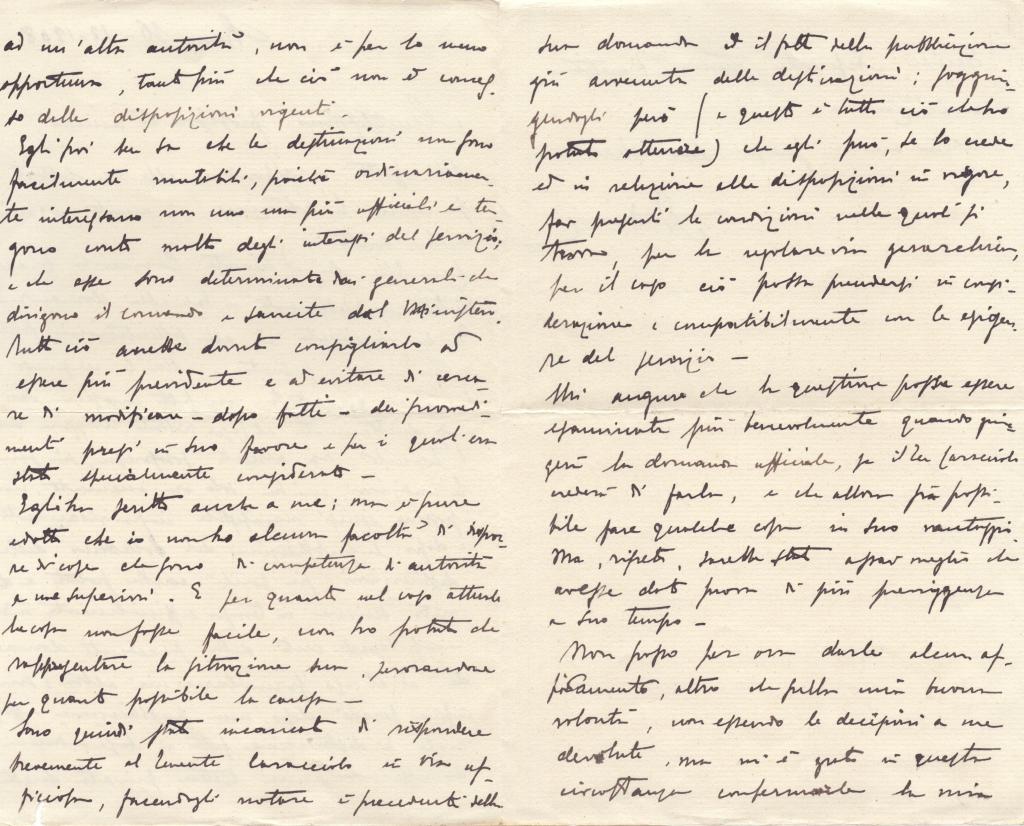 ad un'altra autorità, non è per lo meno
opportuno, tanto più che ciò non è conces-
so dalle disposizioni vigenti.
Egli poi ben sa che le destinazioni non sono
facilmente mutabili, poichè ordinariamen-
te interessano non uno ma più ufficiali e ten-
gono conto molto degli interessi del servizio;
e che esse sono determinate dai generali che
dirigono il comando e sancite dal Ministero.
Tutto ciò avrebbe dovuto consigliarlo ad
essere più previdente e ad evitare di cerca-
re di modificare - dopo fatti - dei provvedi-
menti presi in suo favore e per i quali era
stato specialmente considerato -
Egli ha scritto anche a me; ma è pure
edotto che io non ho alcuna facoltà di dispor-
re di cose che sono di competenza di autorità
a me superiori. E per quanto nel caso attuale
la cosa non fosse facile, non ho potuto che
rappresentare la situazione sua, perorandone
per quanto possibile la causa -
Sono quindi stato incaricato di rispondere
brevemente al Tenente Caracciolo in via uf-
ficiosa, facendogli notare i precedenti della
sua domanda ed il fatto della pubblicazione
già avvenuta delle destinazioni; soggiun-
gendogli però (e questo è tutto ciò che ho
potuto ottenere) che egli può, se lo crede
ed in relazione alle disposizioni in vigore,
far presenti le condizioni nelle quali si
trova, per la regolare via gerarchica,
per il caso ciò possa prendersi in consi-
derazione e compatibilmente con le esigen-
ze del servizio -
Mi auguro che la questione possa essere
esaminata più benevolmente quando giun-
gerà la domanda ufficiale, se il Ten Caracciolo
crederà di farla, e che allora sia possi-
bile fare qualche cosa in suo vantaggio.
Ma, ripeto, sarebbe stato assai meglio che
avesse dato prova di più preveggenza
a suo tempo -
Non posso per ora darle alcun af-
fidamento, altro che sulla mia buona
volontà, non essendo le decisioni a me
devolute, ma mi è grato in questa
circostanza confermarle la mia